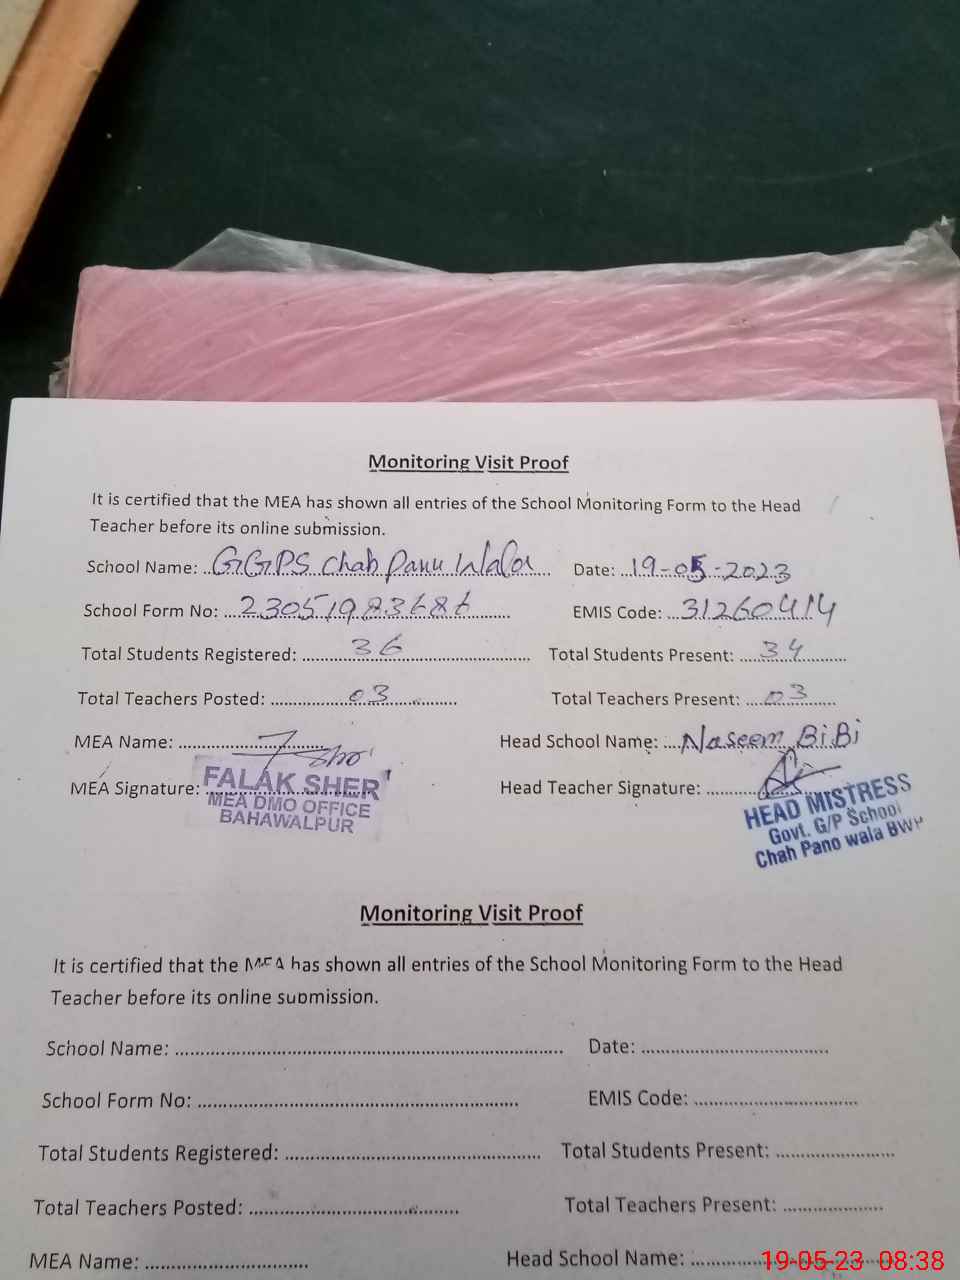 Monitoring Visit Proof
It is certified that the MEA has shown all entries of the School Monitoring Form to the Head
Teacher before its online submission.
School Name: GGPS Chah Panu Wala Date: 19-05-2023
School Form No: 23051983686 EMIS Code: 31260414
Total Students Registered: 36 Total Students Present: 34
Total Teachers Posted: 03 Total Teachers Present: 03
MEA Name: Head School Name: Naseem BiBi
MEA Signature: Head Teacher Signature:
FALAK SHER
MEA DMO OFFICE
BAHAWALPUR
HEAD MISTRESS
Govt. G/P School
Chah Pano wala BWP
Monitoring Visit Proof
It is certified that the MEA has shown all entries of the School Monitoring Form to the Head
Teacher before its online submission.
School Name: Date:
School Form No: EMIS Code:
Total Students Registered: Total Students Present:
Total Teachers Posted: Total Teachers Present:
MEA Name: Head School Name:
19-05-23 08:38